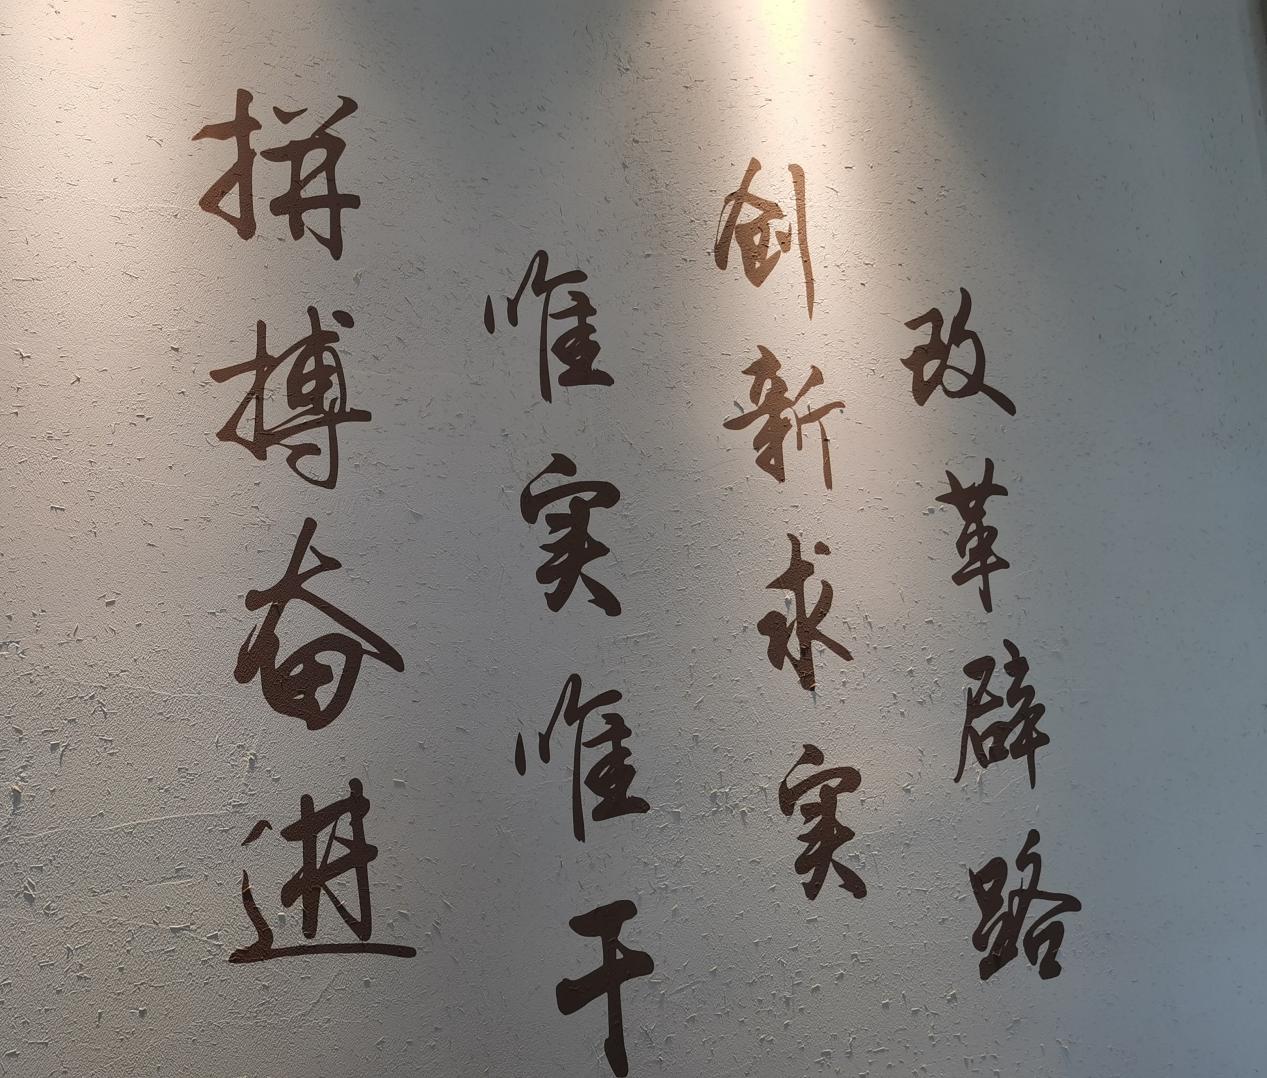 改革辟路
创新求实
唯实唯干
拼搏奋进